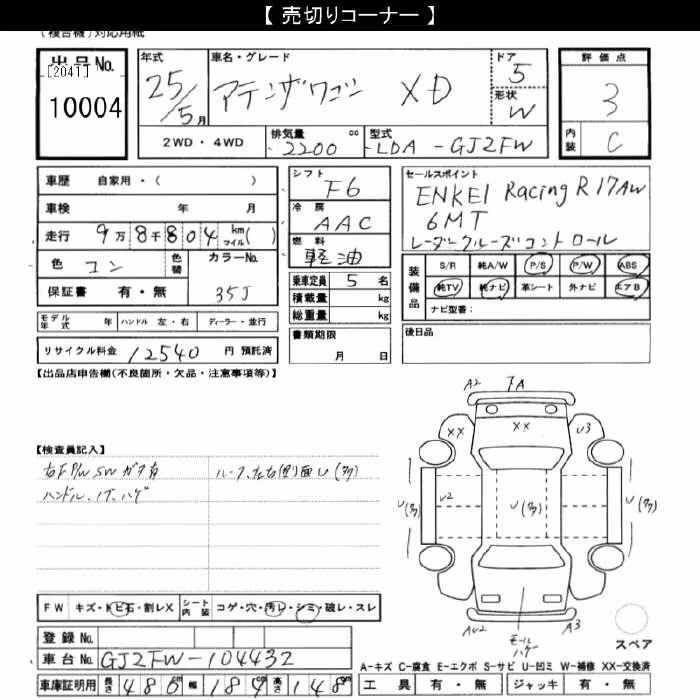 【 売切りコーナー 】
(複合機)対応用紙
出品No.
[2041]
10004
年式
25/5月
車名・グレード
アテンザワゴン XD
ドア
5
形状
W
評価点
3
内装
C
2WD・4WD
排気量
2200
cc
型式
LDA-GJ2FW
車歴 自家用・( )
車検 年 月
走行 9万8千804 km マイル( )
色 コン 色替
カラーNo. 35J
保証書 有・無
シフト
F6
冷房
AAC
燃料
軽油
乗車定員 5 名
積載量 kg
総重量 kg
書類期限
月 日
セールスポイント
ENKEI Racing R 17AW
6MT
レーダークルーズコントロール
装備品
S/R 純A/W P/S P/W ABS
純TV 純ナビ 革シート 外ナビ エアB
ナビ型番:
後日品
モデル年式 年 ハンドル 左・右 ディーラー・並行
リサイクル料金 12540 円 預託済
【出品店申告欄(不良箇所・欠品・注意事項等)】
【検査員記入】
右F P/W SW ガタ有
ハンドル、ハゲ
ルーフ、左右(側)面U(多)
A2 FA
XX XX U3
U(多) U2 U(多) U(多)
AU2 モールハゲ A3
スペア
FW キズ・トビ石・割レX シート内装 コゲ・穴・汚レ・シミ・破レ・スレ
登録No.
車台No. GJ2FW-104432
車庫証明用 長さ 480 幅 184 高さ 148
A-キズ C-腐食 E-エクボ S-サビ U-凹ミ W-補修 XX-交換済
工具 有・無 ジャッキ 有・無